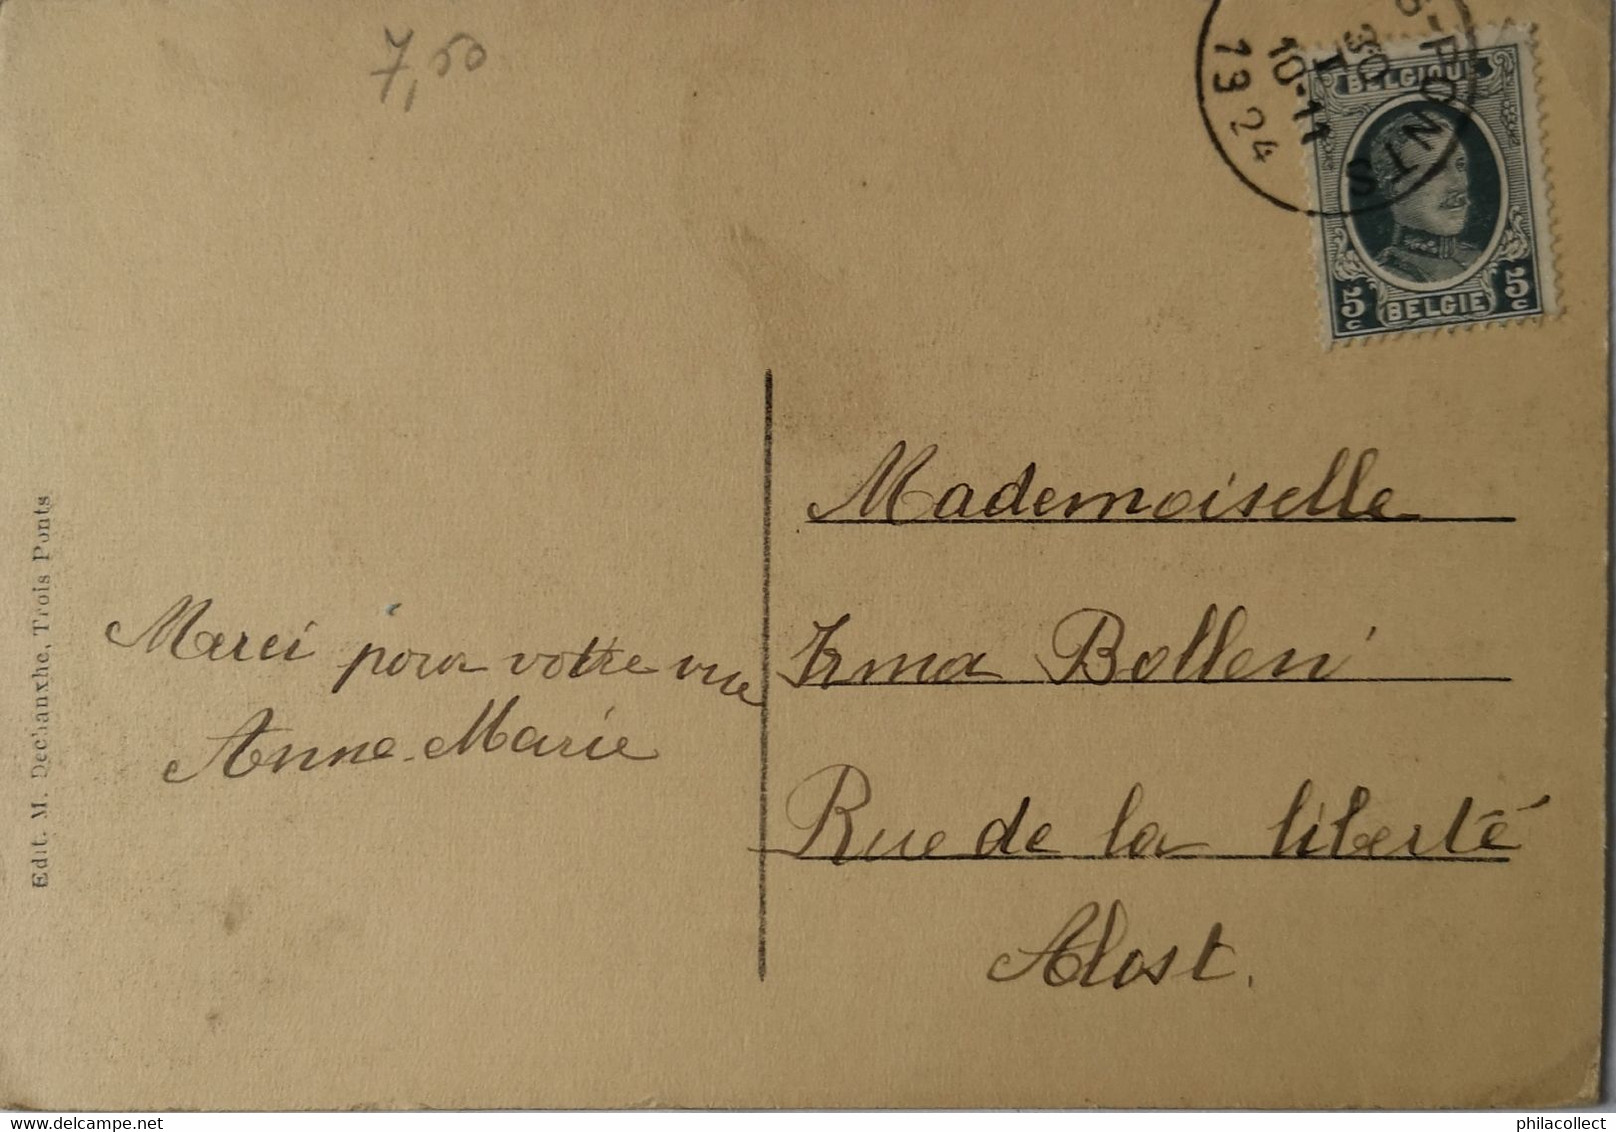 7,50
S-PONTS
30
I
10-11
1924
BELGIQUE
5c BELGIE 5c
Mademoiselle
Merci pour votre vue
Irma Bollen
Anne-Marie
Rue de la liberté
Alost.
Edit. M. Dechanxhe, Trois Ponts
delcampe.net
philacollect